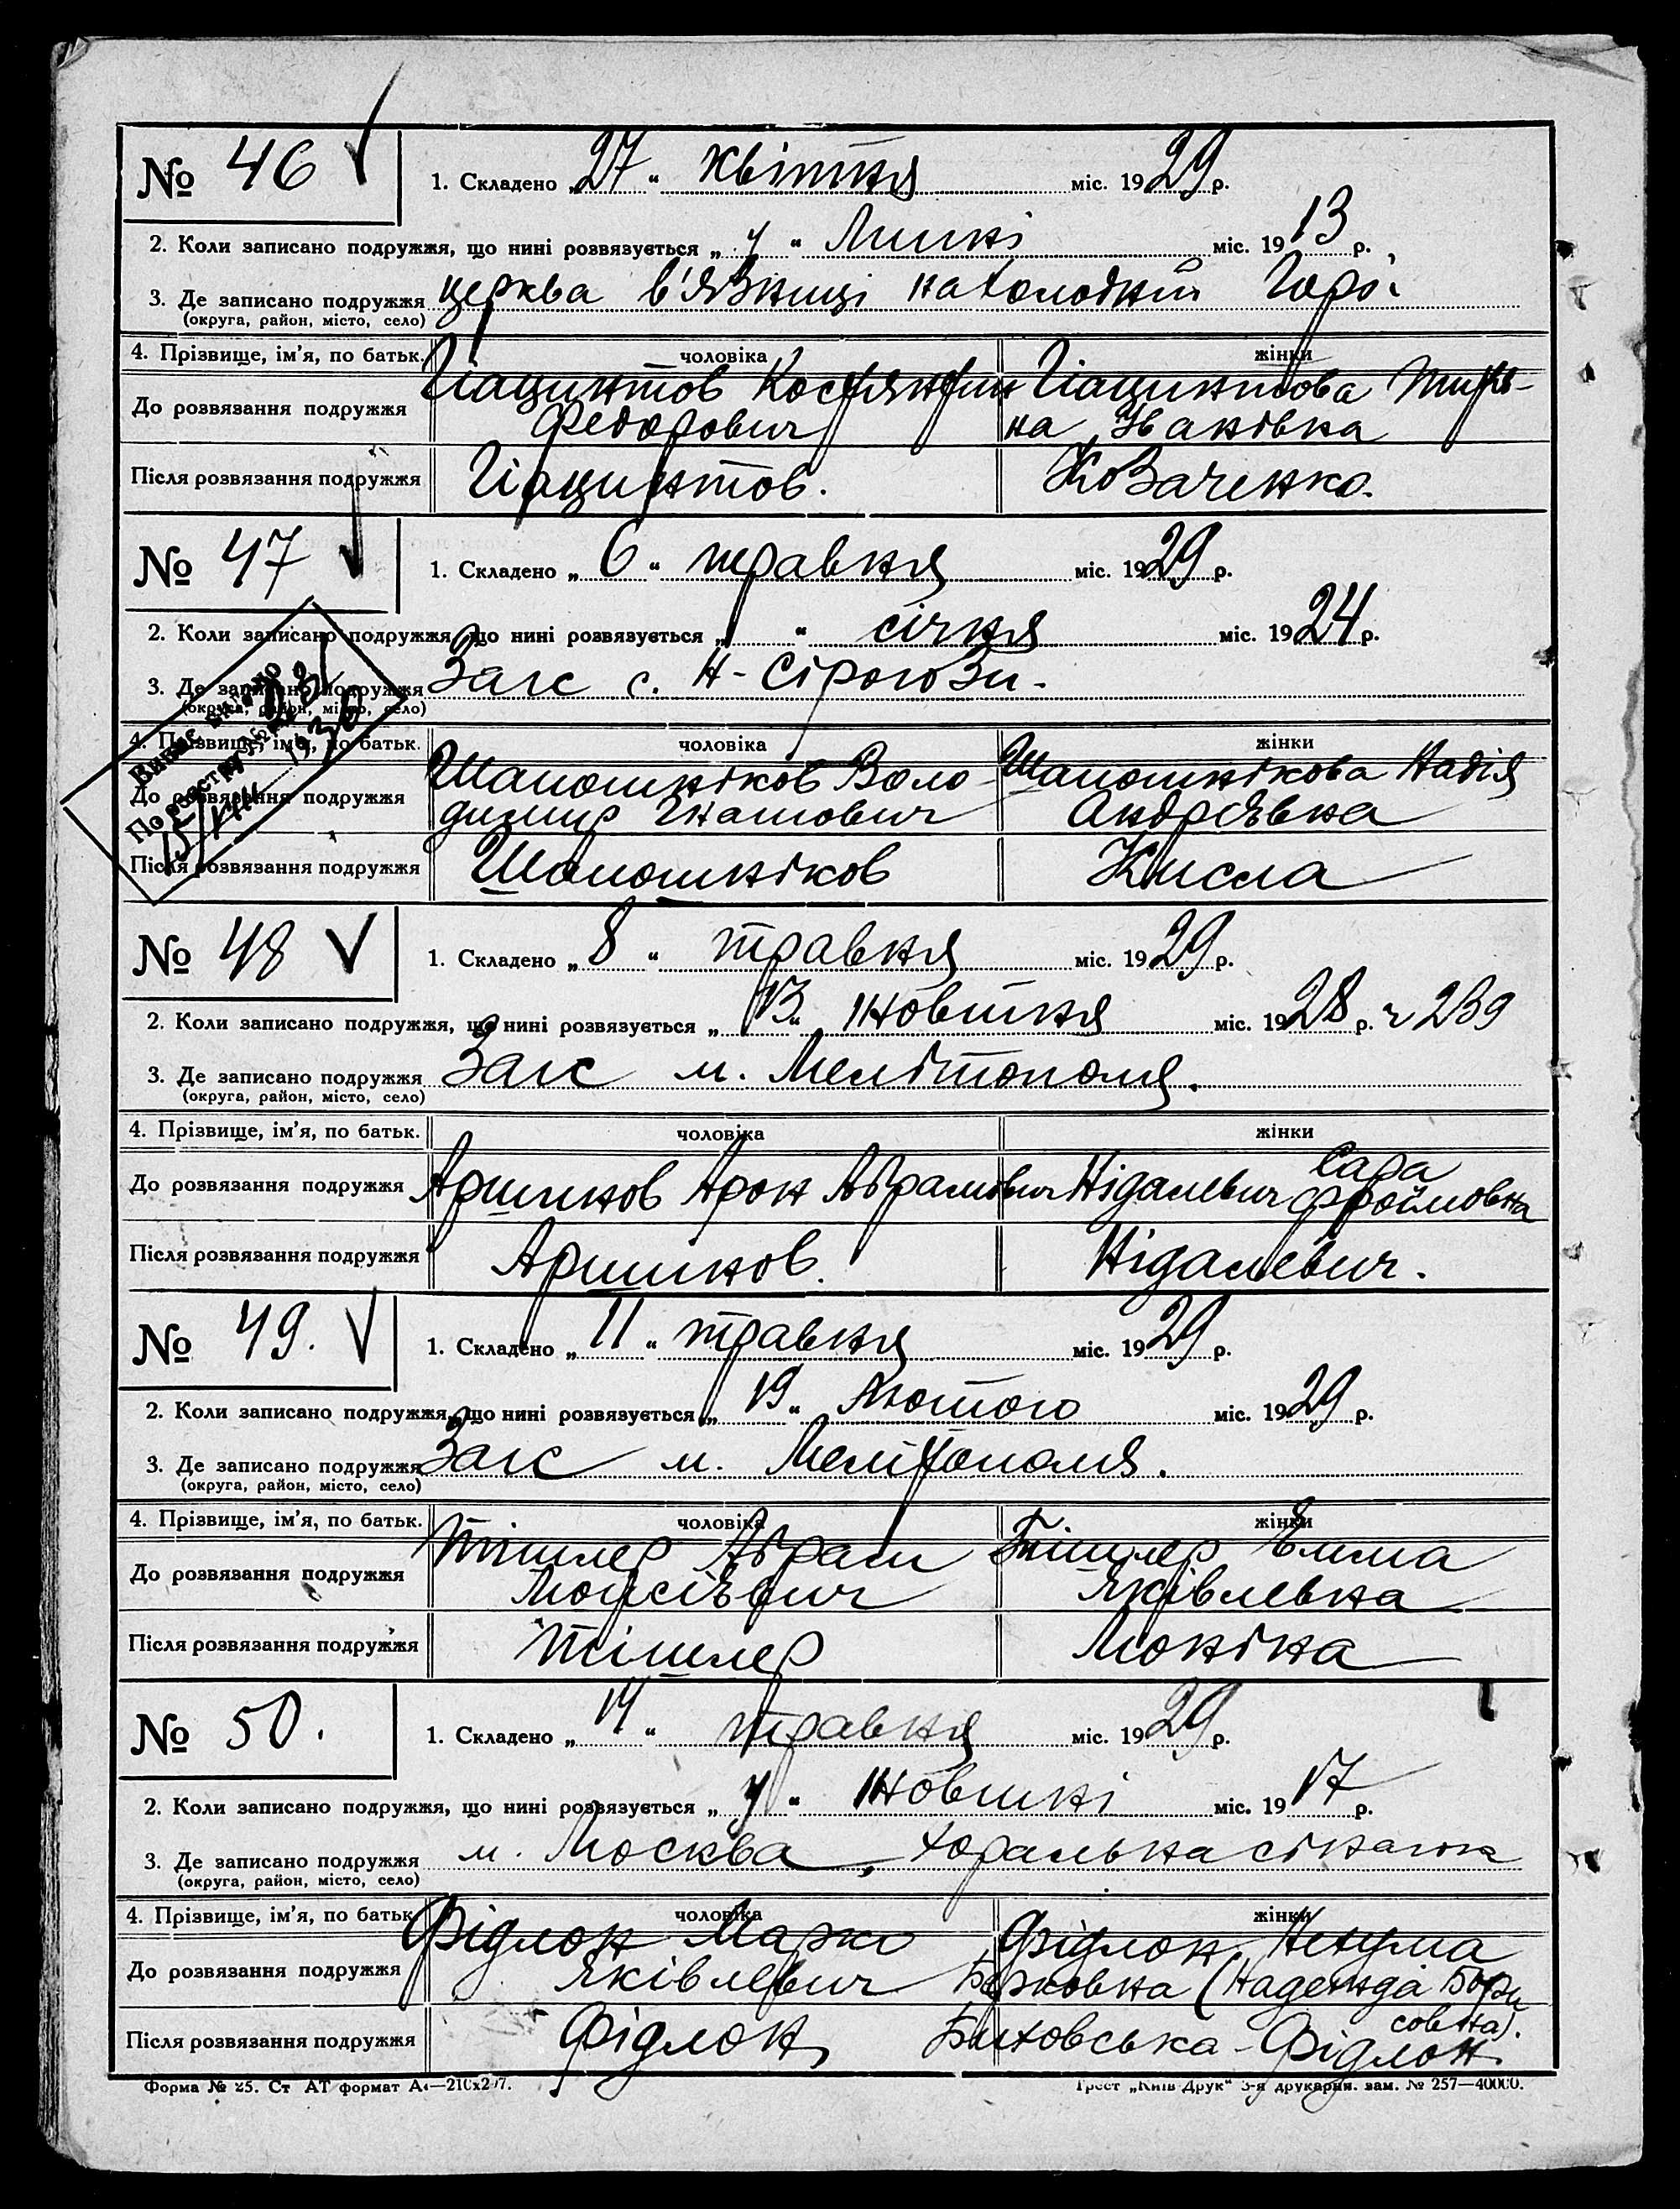 № 46 1. Складено „27“ квітня міс. 1929 р.
2. Коли записано подружжя, що нині розвязується „у“ Липні міс. 1913 р.
3. Де записано подружжя церква в'язниці на холодний Горі.
(округа, район, місто, село)
4. Прізвище, ім'я, по батьк. чоловіка жінки
До розвязання подружжя Гіацинтов Костянтин Гіацинтова
Федорович на Іванівна
Після розвязання подружжя Гіацинтов. Коваченко.
№ 47 1. Складено „6“ травня міс. 1929 р.
2. Коли записано подружжя, що нині розвязується „ “ січня міс. 1924 р.
3. Де записано подружжя Загс с. Н-Сірогози.
(округа, район, місто, село)
4. Прізвище, ім'я, по батьк. чоловіка жінки
До розвязання подружжя Шапошніков Воло Шапошнікова Надія
димир Гнатович Андріївна
Після розвязання подружжя Шапошніков Кисла
Випис видано
По реєстру №
1930
№ 48 1. Складено „8“ травня міс. 1929 р.
2. Коли записано подружжя, що нині розвязується „13“ жовтня міс. 1928 р. ч 239
3. Де записано подружжя Загс м. Мелітополя.
(округа, район, місто, село)
4. Прізвище, ім'я, по батьк. чоловіка жінки
До розвязання подружжя Аршинов Арон Абрамович Нідалевич Сара Фроймовна
Після розвязання подружжя Аршинов. Нідалевич.
№ 49. 1. Складено „11“ травня міс. 1929 р.
2. Коли записано подружжя, що нині розвязується „19“ лютого міс. 1929 р.
3. Де записано подружжя Загс м. Мелітополя.
(округа, район, місто, село)
4. Прізвище, ім'я, по батьк. чоловіка жінки
До розвязання подружжя Тішлер Абрам Тішлер Емма
Мойсієвич Яківлевна
Після розвязання подружжя Тішлер Моніна
№ 50. 1. Складено „14“ травня міс. 1929 р.
2. Коли записано подружжя, що нині розвязується „у“ жовтні міс. 1917 р.
3. Де записано подружжя м. Москва, хоральна сінагога
(округа, район, місто, село)
4. Прізвище, ім'я, по батьк. чоловіка жінки
До розвязання подружжя Фідлон Марк Фідлон Нехума
Яківлевич Берковна (Надежда Бори
совна).
Після розвязання подружжя Фідлон Биховська-Фідлон
Форма № 25. Ст АТ формат А4—210х297. Трест „Київ-Друк“ 3-я друкарня. зам. № 257—40000.